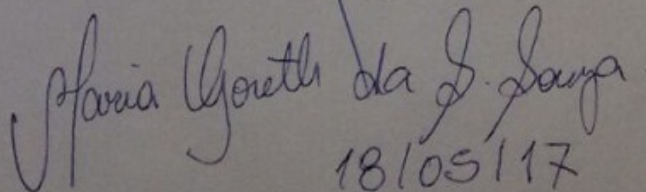 Maria Goreth da S. Souza
18/05/17